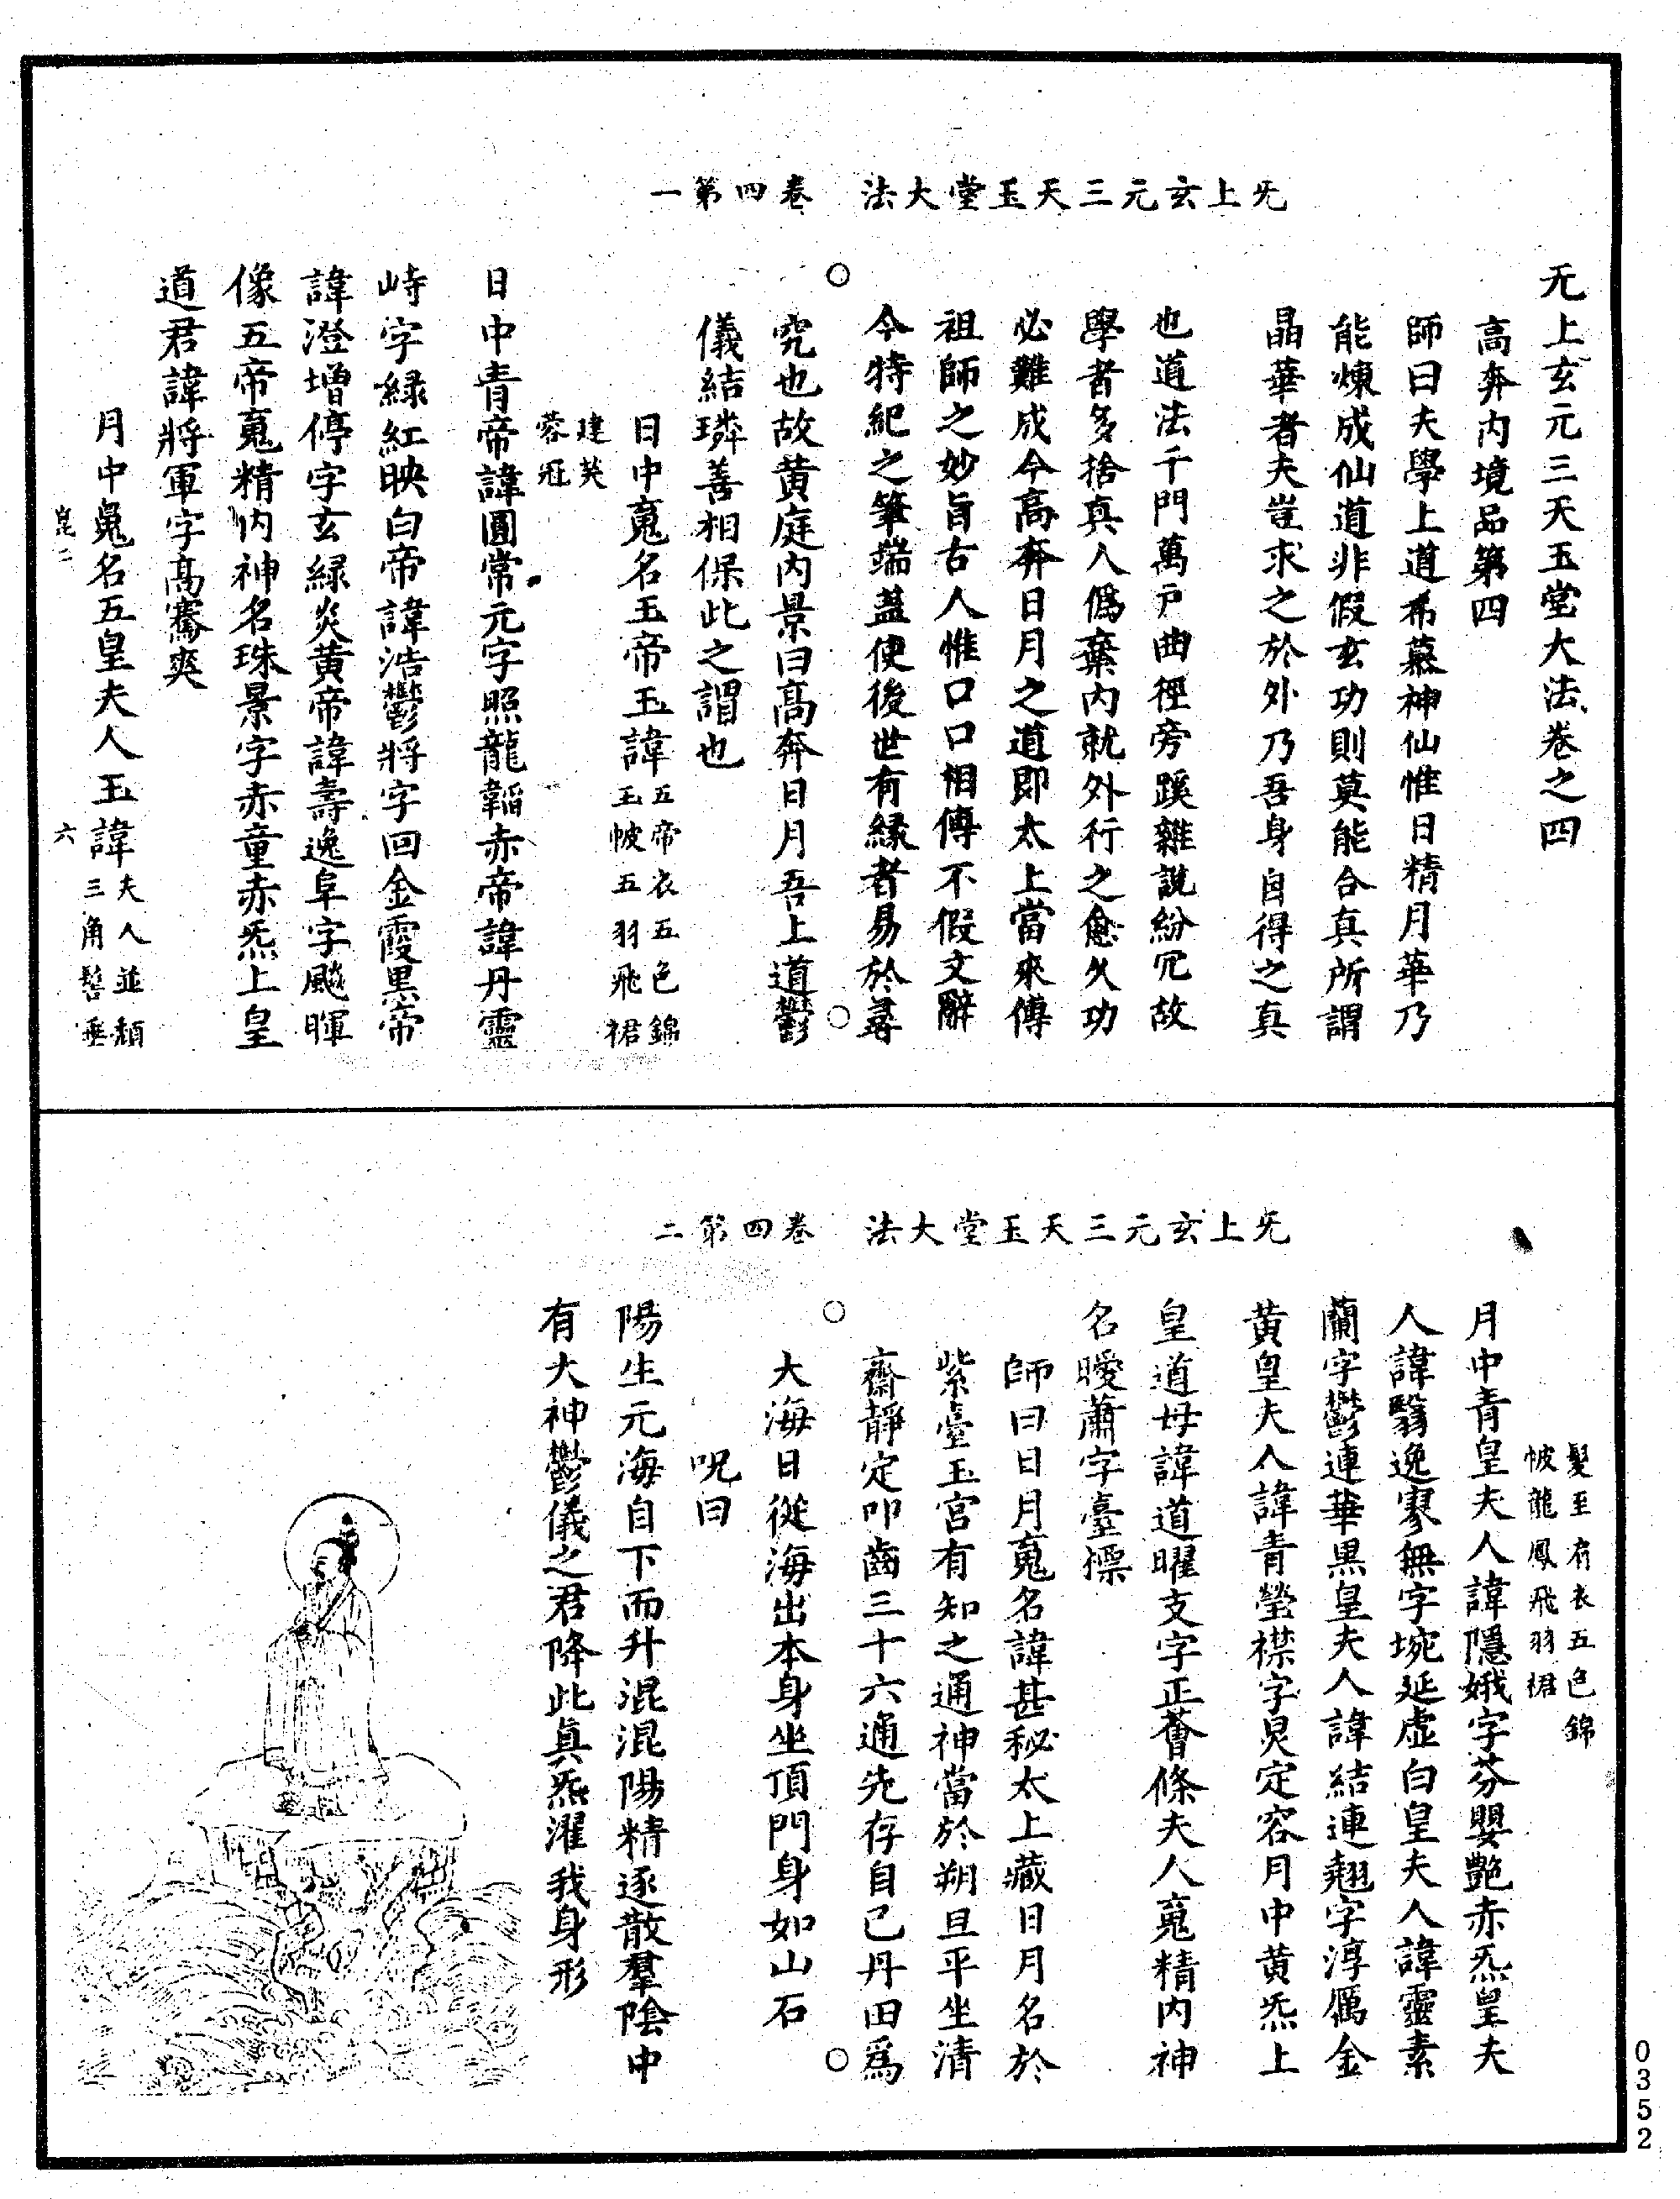 无上玄元三天玉堂大法　卷四第一
无上玄元三天玉堂大法卷之四
高奔內境品第四
師曰夫學上道希慕神仙惟日精月華乃
能煉成仙道非假玄功則莫能合真所謂
晶華者夫豈求之於外乃吾身自得之真
也道法千門萬戶曲徑旁蹊雜說紛冗故
學者多捨真人僞棄內就外行之愈久功
必難成今高奔日月之道即太上當來傳
祖師之妙旨古人惟口口相傳不假文辭
今特紀之筆端蓋使後世有緣者易於尋
究也故黃庭內景曰高奔日月吾上道鬱
儀結璘善相保此之謂也
日中䰟名玉帝玉諱五帝衣五色錦
玉帔五羽飛裙
建芙
蓉冠
日中青帝諱圓常元字照龍韜赤帝諱丹靈
峙字綠紅映白帝諱浩鬱將字回金霞黑帝
諱澄增停字玄綠炎黃帝諱壽逸阜字飈暉
像五帝䰟精內神名珠景字赤童赤炁上皇
道君諱將軍字高騫爽
月中䰟名五皇夫人玉諱夫人並頹
三角髻垂
崑二　六
无上玄元三天玉堂大法　卷四第二
髮至肩衣五色錦
帔龍鳳飛羽裙
月中青皇夫人諱隱娥字芬嬰艷赤炁皇夫
人諱翳逸寥無字婉延虛白皇夫人諱靈素
蘭字鬱連華黑皇夫人諱結連翹字淳厲金
黃皇夫人諱青瑩襟字炅定容月中黃炁上
皇道母諱道曜支字正薈條夫人䰟精內神
名曖蕭字臺摽
師曰日月䰟名諱甚秘太上藏日月名於
紫臺玉宮有知之通神當於朔旦平坐清
齋靜定叩齒三十六通先存自己丹田爲
大海日從海出本身坐頂門身如山石
呪曰
陽生元海自下而升混混陽精逐散羣陰中
有大神鬱儀之君降此真炁濯我身形
0352